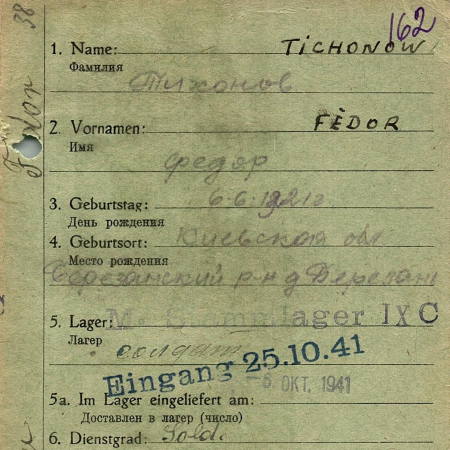 38
162
1. Name: TICHONOW
Фамилия
Тихонов
2. Vornamen: FÈDOR
Имя
федяр
3. Geburtstag: 6.6.1921г
День рождения
4. Geburtsort: Киевская обл
Место рождения
Березанский р-н д Березань
5. Lager: M. Stammlager IX C
Лагер
солдат
Eingang 25.10.41
8 OKT. 1941
5a. Im Lager eingeliefert am:
Доставлен в лагер (число)
6. Dienstgrad: Sold.